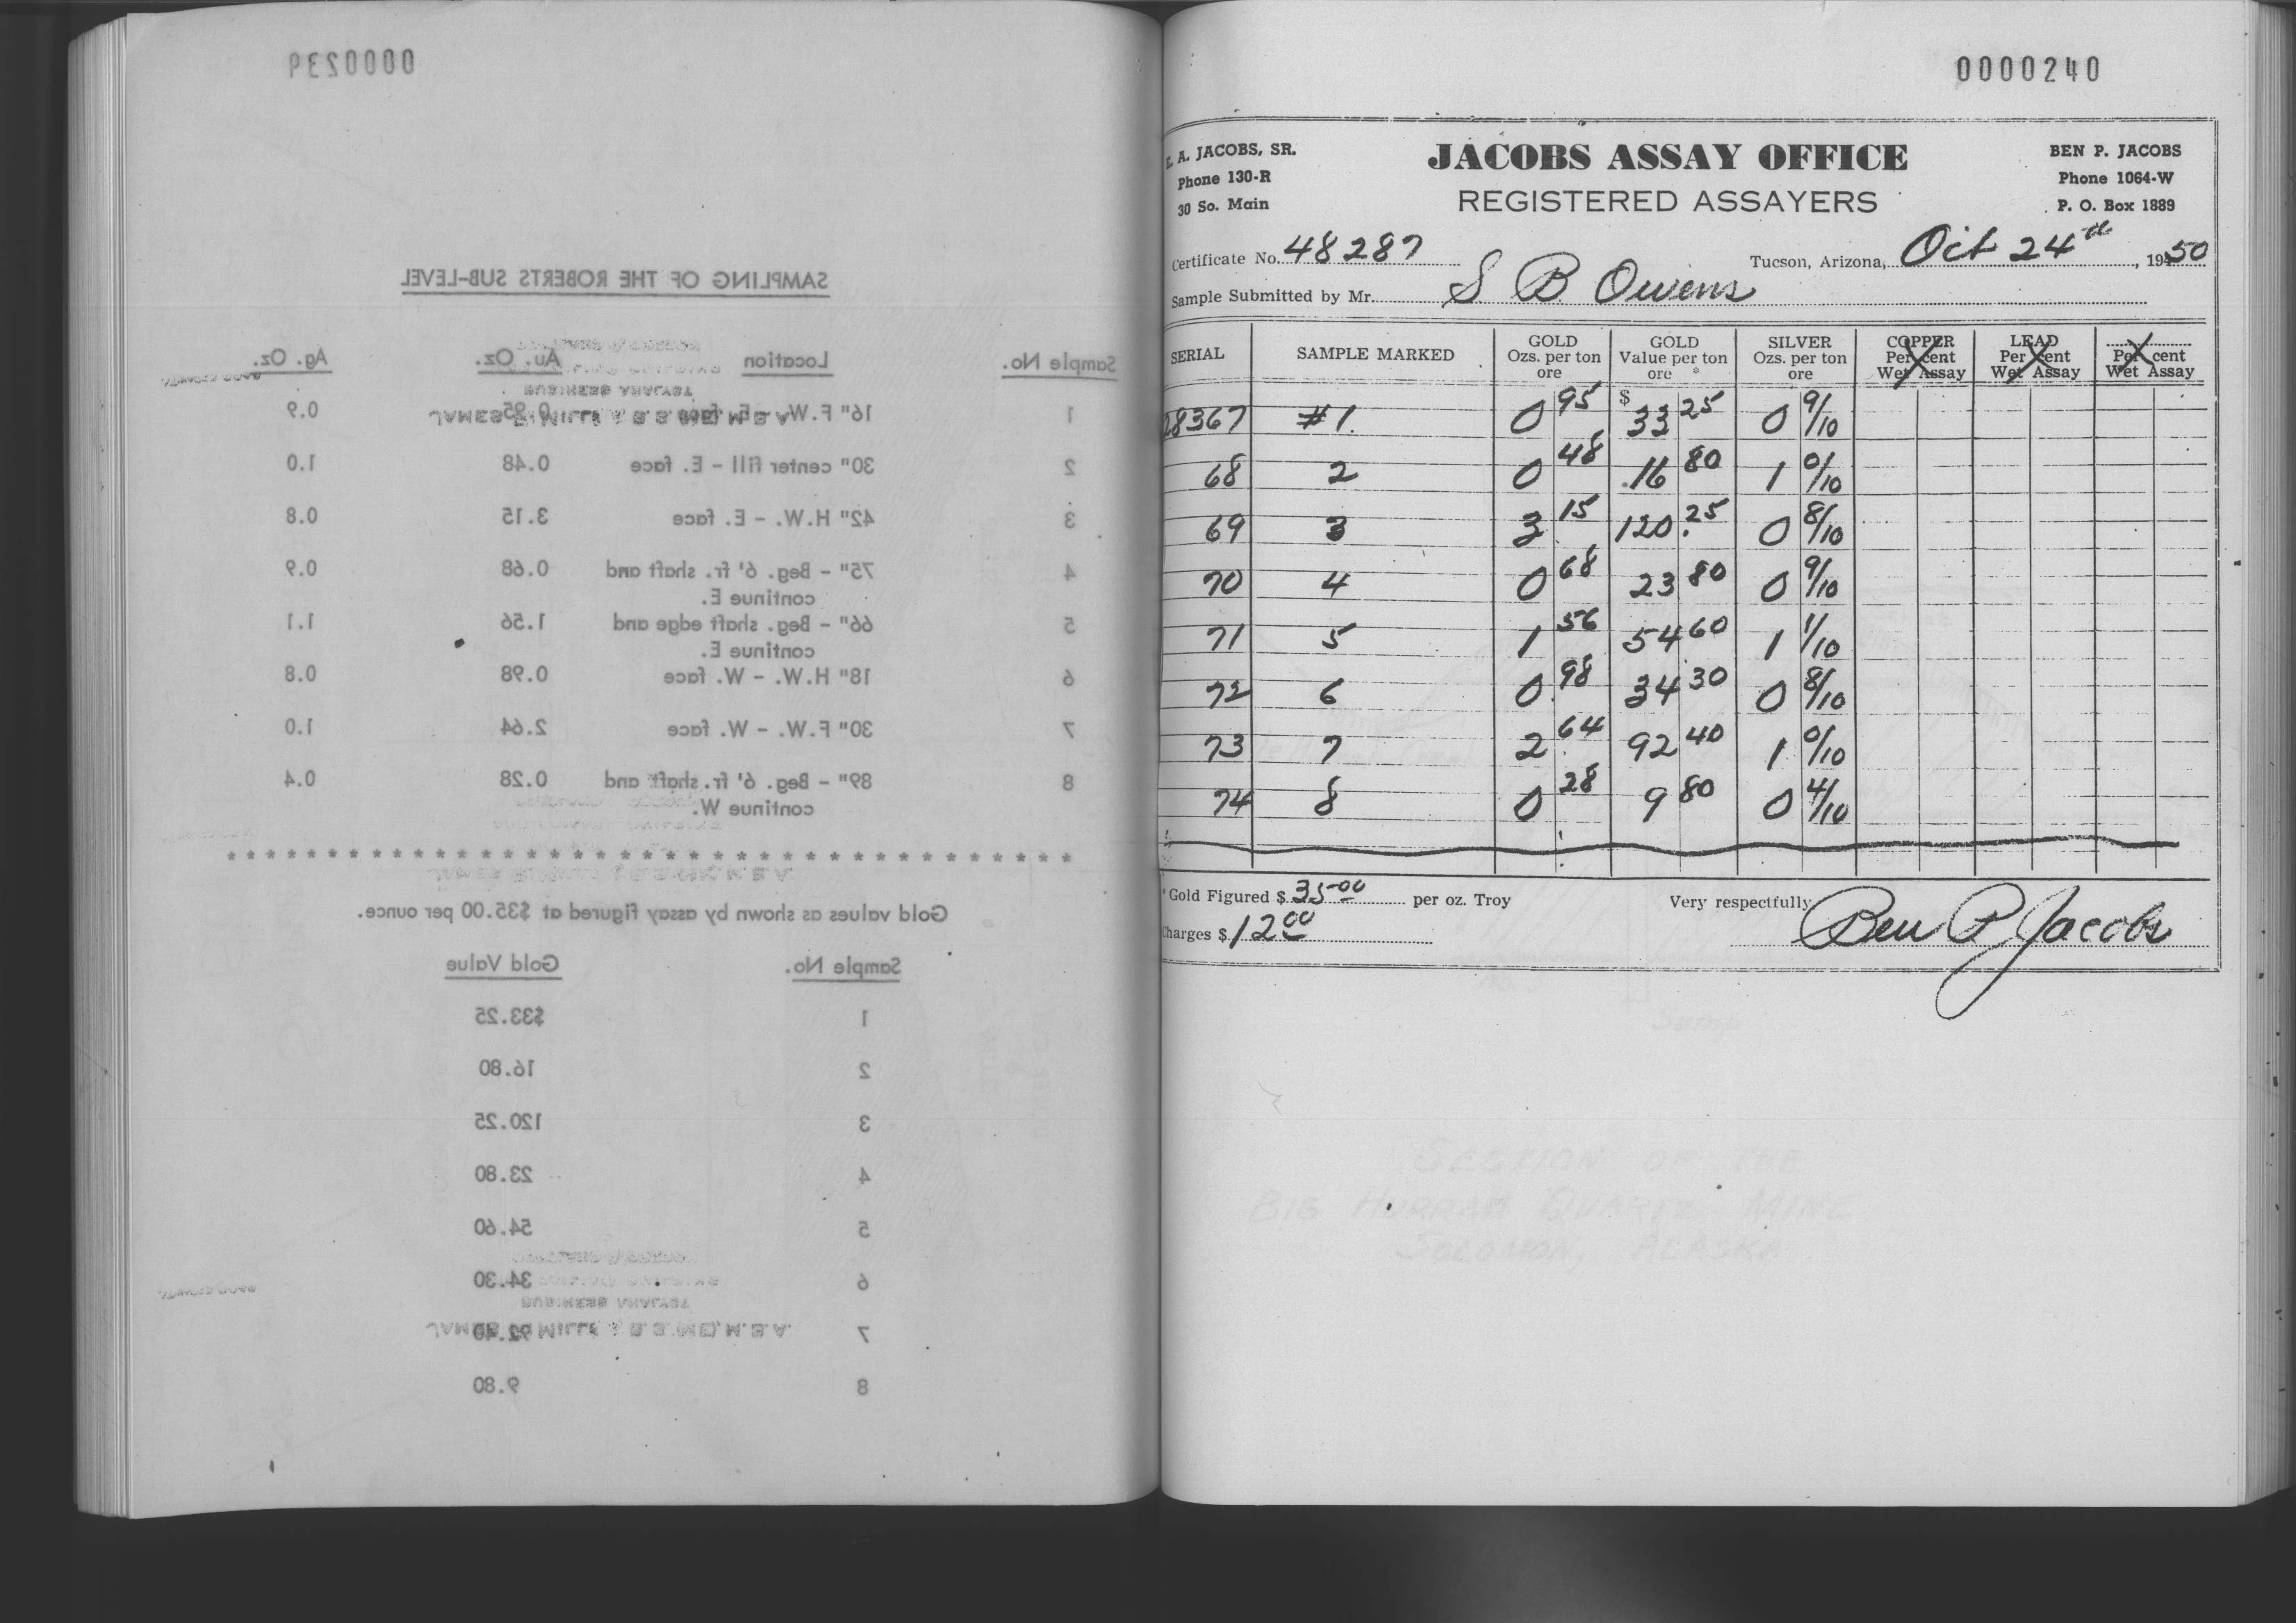 0000239
SAMPLING OF THE ROBERTS SUB-LEVEL
Sample No. Location Au. Oz. Ag. Oz.
BUSINESS ANALYST
1 16" F.W. - E. face 0.95 0.9
2 30" center fill - E. face 0.48 1.0
3 42" H.W. - E. face 3.15 0.8
4 75" - Beg. 6' fr. shaft and 0.68 0.9
continue E.
5 66" - Beg. shaft edge and 1.56 1.1
continue E.
6 18" H.W. - W. face 0.98 0.8
7 30" F.W. - W. face 2.64 1.0
8 89" - Beg. 6' fr. shaft and 0.28 0.4
continue W.
* * * * * * * * * * * * * * * * * * * * * * * * * * * * * * * * * * * * *
Gold values as shown by assay figured at $35.00 per ounce.
Sample No. Gold Value
1 $33.25
2 16.80
3 120.25
4 23.80
5 54.60
6 34.30
BUSINESS ANALYST
7 92.40
8 9.80
0000240
E. A. JACOBS, SR. JACOBS ASSAY OFFICE BEN P. JACOBS
Phone 130-R REGISTERED ASSAYERS Phone 1064-W
30 So. Main P. O. Box 1889
Certificate No. 48287 Tucson, Arizona, Oct 24th, 1950
Sample Submitted by Mr. S B Owens
SERIAL SAMPLE MARKED GOLD Ozs. per ton ore GOLD Value per ton ore * SILVER Ozs. per ton ore COPPER Per cent Wet Assay LEAD Per cent Wet Assay Per cent Wet Assay
28367 #1 0 95 $ 33 25 0 9/10
68 2 0 48 16 80 1 0/10
69 3 3 15 120.25 0 8/10
70 4 0 68 23 80 0 9/10
71 5 1 56 54 60 1 1/10
72 6 0 98 34 30 0 8/10
73 7 2 64 92 40 1 0/10
74 8 0 28 9 80 0 4/10
* Gold Figured $ 35 00 per oz. Troy Very respectfully,
Charges $ 12 00 Ben P Jacobs
SECTION OF THE
BIG HURRAH QUARTZ MINE
SOLOMON, ALASKA